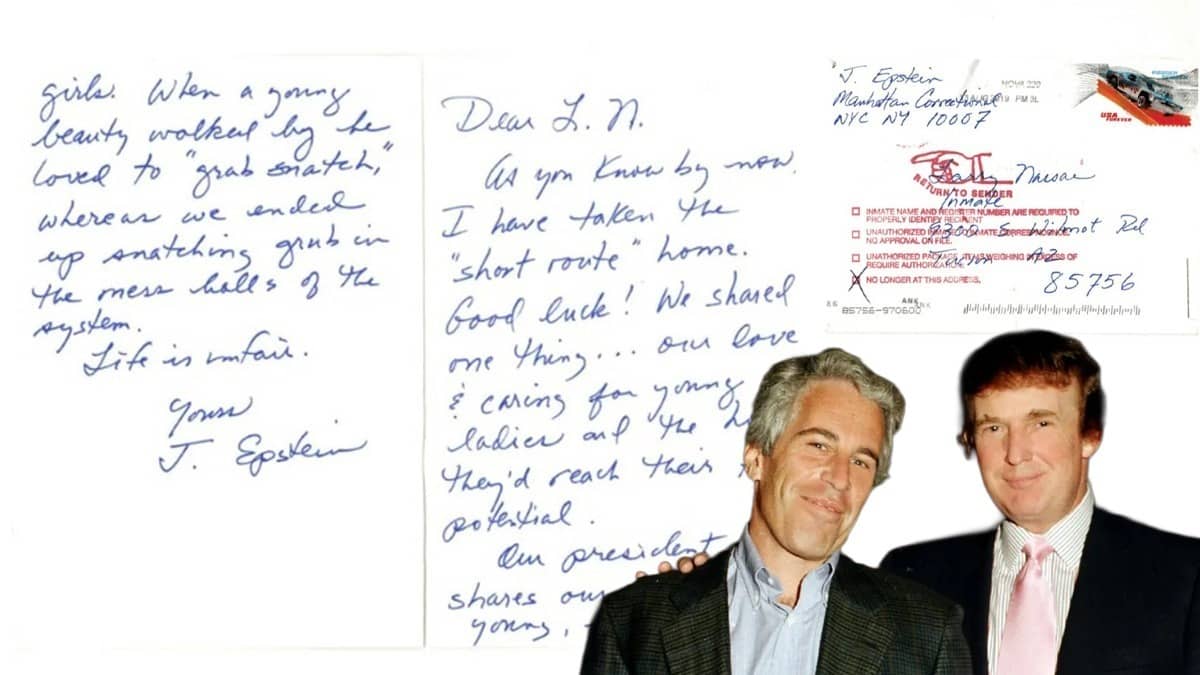 girls. When a young
beauty walked by he
loved to "grab snatch,"
whereas we ended
up snatching grub in
the mess halls of the
system.
Life is unfair.
Yours
J. Epstein
Dear L. N.
As you know by now,
I have taken the
"short route" home.
Good luck! We shared
one thing... our love
& caring for young
ladies and the
they'd reach their
potential.
Our president
shares our
young,
J. Epstein
Manhattan Correctional
NYC NY 10007
PM 3L
FOREVER
USA
Larry Nassar
Inmate
9300 S. Wilmot Rd
Tucson AZ
85756
RETURN TO SENDER
INMATE NAME AND REGISTER NUMBER ARE REQUIRED TO
PROPERLY IDENTIFY RECIPIENT
UNAUTHORIZED INMATE TO INMATE CORRESPONDENCE.
NO APPROVAL ON FILE.
UNAUTHORIZED PACKAGE ITEMS WEIGHING IN EXCESS OF
REQUIRE AUTHORIZATION.
X NO LONGER AT THIS ADDRESS.
ANK
85756-970600